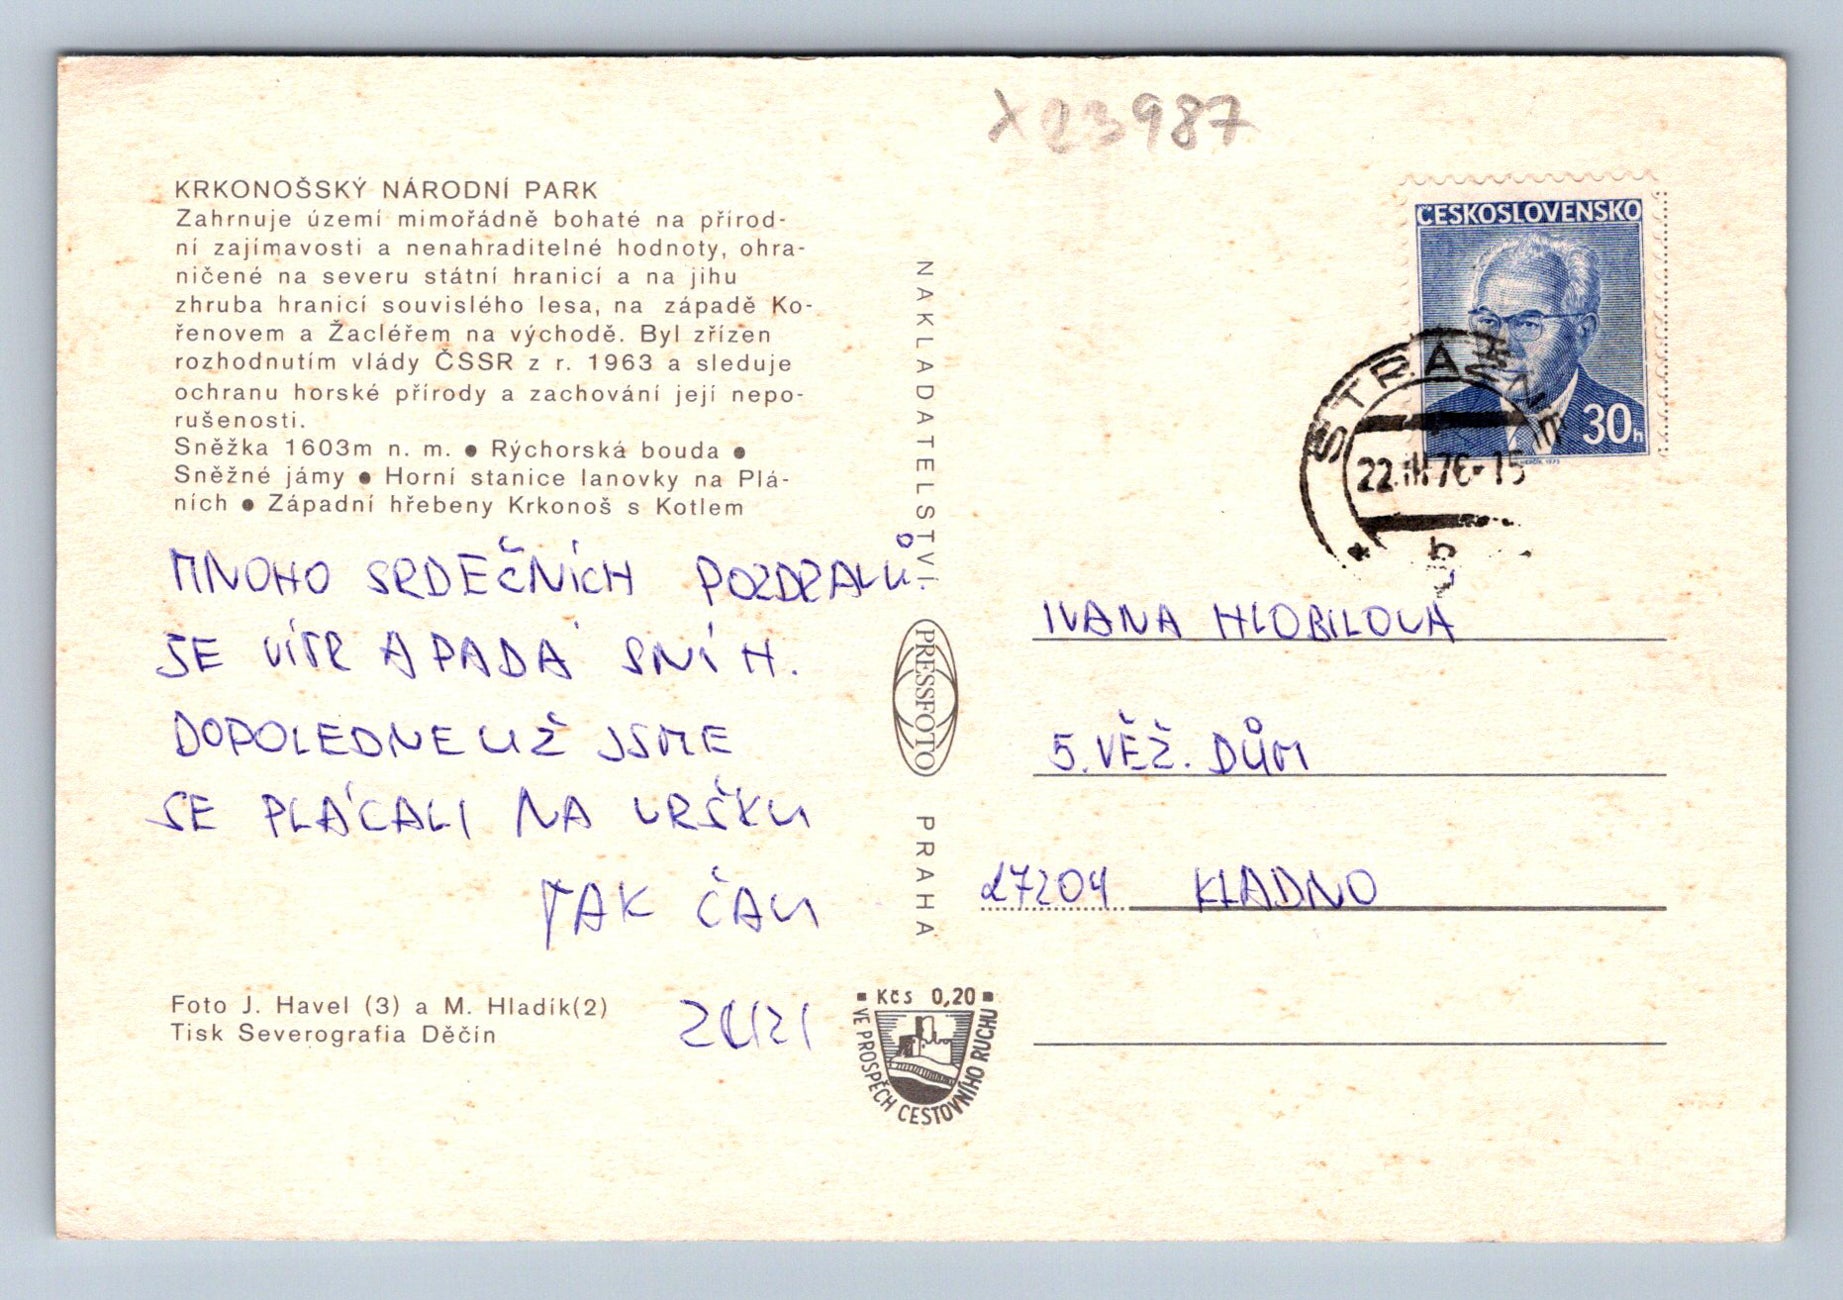 X23987
KRKONOŠSKÝ NÁRODNÍ PARK
Zahrnuje území mimořádně bohaté na přírod-
ní zajímavosti a nenahraditelné hodnoty, ohra-
ničené na severu státní hranicí a na jihu
zhruba hranicí souvislého lesa, na západě Ko-
řenovem a Žacléřem na východě. Byl zřízen
rozhodnutím vlády ČSSR z r. 1963 a sleduje
ochranu horské přírody a zachování její nepo-
rušenosti.
Sněžka 1603m n. m. ● Rýchorská bouda ●
Sněžné jámy ● Horní stanice lanovky na Plá-
ních ● Západní hřebeny Krkonoš s Kotlem
MNOHO SRDEČNÍCH POZDRAVŮ.
JE VÍTR A PADÁ SNÍH.
DOPOLEDNE UŽ JSME
SE PLÁCALI NA VRŠKU
TAK ČAU
Foto J. Havel (3) a M. Hladík(2)
Tisk Severografia Děčín
NAKLADATELSTVÍ
PRESSFOTO
PRAHA
Kčs 0,20
VE PROSPĚCH CESTOVNÍHO RUCHU
ČESKOSLOVENSKO
30h
STRÁŽNÉ
22.III.76-15
b
IVANA HLOBILOVÁ
5. VĚŽ. DŮM
27204 KLADNO